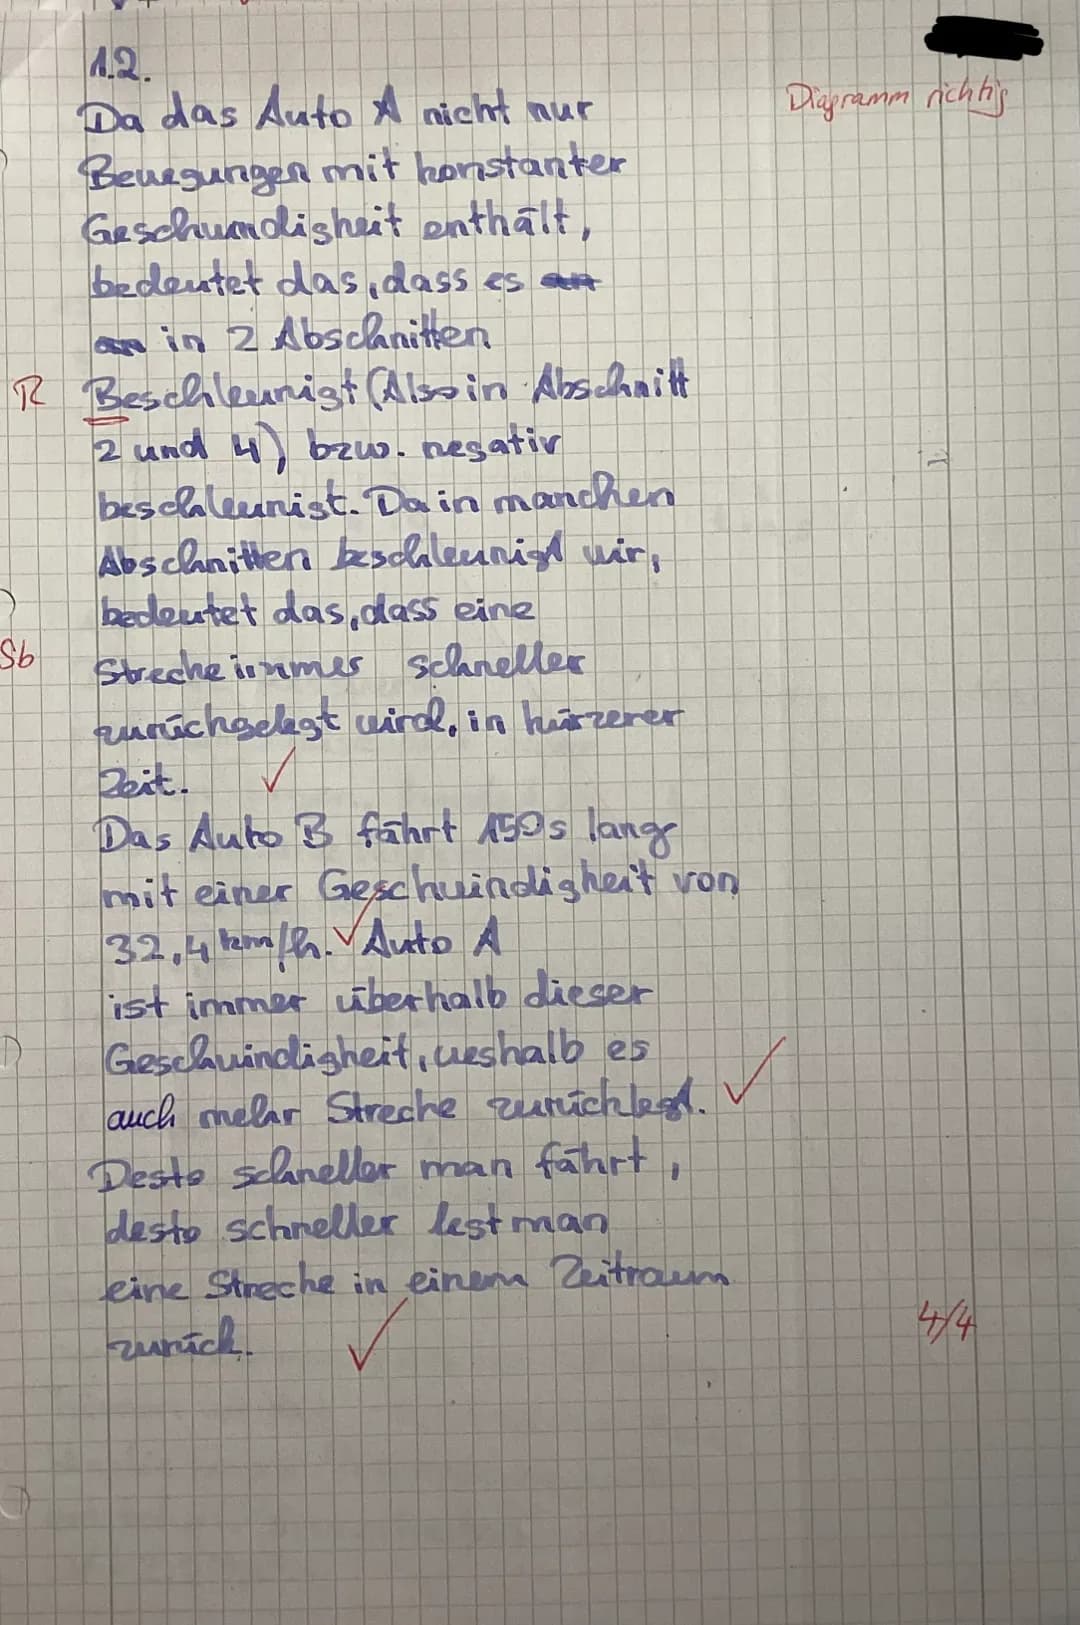 1.2.
Da das Auto A nicht nur
Diagramm richtig
Bewegungen mit konstanter
Geschwindigkeit enthält,
bedeutet das, dass es
in 2 Abschnitten
R Beschleunigt (Also in Abschnitt
2 und 4) bzw. negativ
beschleunigt. Da in manchen
Abschnitten beschleunigt wir,
bedeutet das, dass eine
Sb Strecke immer schneller
zurückgelegt wird, in kürzerer
Zeit. ✓
Das Auto B fährt 150s lang
mit einer Geschwindigkeit von
32,4 km/h. ✓ Auto A
ist immer überhalb dieser
Geschwindigkeit, weshalb es
auch mehr Strecke zurücklegt. ✓
Desto schneller man fährt,
desto schneller legt man
eine Strecke in einem Zeitraum
zurück. ✓
4/4